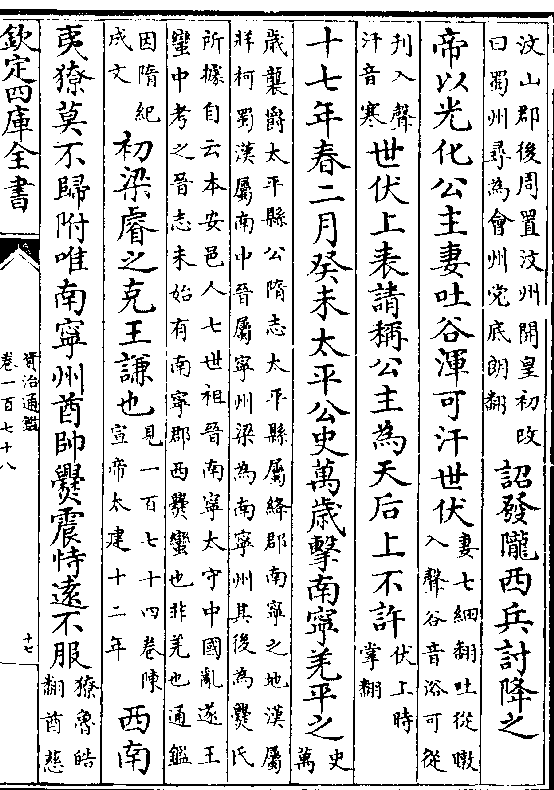 汶山郡後周置汶州開皇初改
曰蜀州尋為會州党底朗翻
詔發隴西兵討降之
帝以光化公主妻吐谷渾可汗世伏
妻七細翻吐從暾
入聲谷音浴可從
刋入聲
汗音寒
世伏上表請稱公主為天后上不許
伏上時
掌翻
十七年春二月癸未太平公史萬歲擊南寧羌平之
史
萬
歲襲爵太平縣公隋志太平縣屬絳郡南寧之地漢屬
牂柯蜀漢屬南中晉屬寧州梁為南寧州其後為爨氏
所據自云本安邑人七世祖晉南寧太守中國亂遂王
蠻中考之晉志未始有南寧郡西爨蠻也非羌也通鑑
因隋紀
成文
初梁睿之克王謙也
見一百七十四卷陳
宣帝太建十二年
西南
夷獠莫不歸附唯南寧州酋帥爨震恃遠不服
獠魯皓
翻酋慈
欽定四庫全書
資治通鑑
卷一百七十八
十七